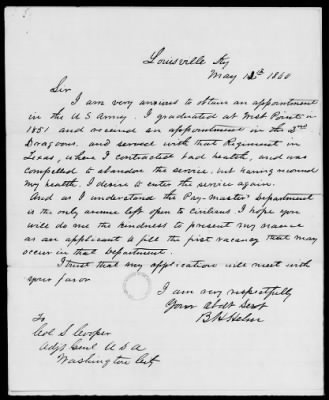 Louisville Ky
May 12th 1860
Sir
I am very anxious to obtain an appointment
in the U S Army. I graduated at West Point in
1851 and received an appointment in the 2nd
Dragoons, and served with that Regiment in
Texas, where I contracted bad health, and was
compelled to abandon the service, but having recovered
my health, I desire to enter the service again.
And as I understand the Pay-Master Department
is the only avenue left open to civilians. I hope you
will do me the kindness to present my name
as an applicant to fill the first vacancy that may
occur in that Department.
I trust that my application will meet with
your favor
I am very respectfully
Your Obdt Servt
B H Helm
To
Col S Cooper
Adjt Genl U S A
Washington City